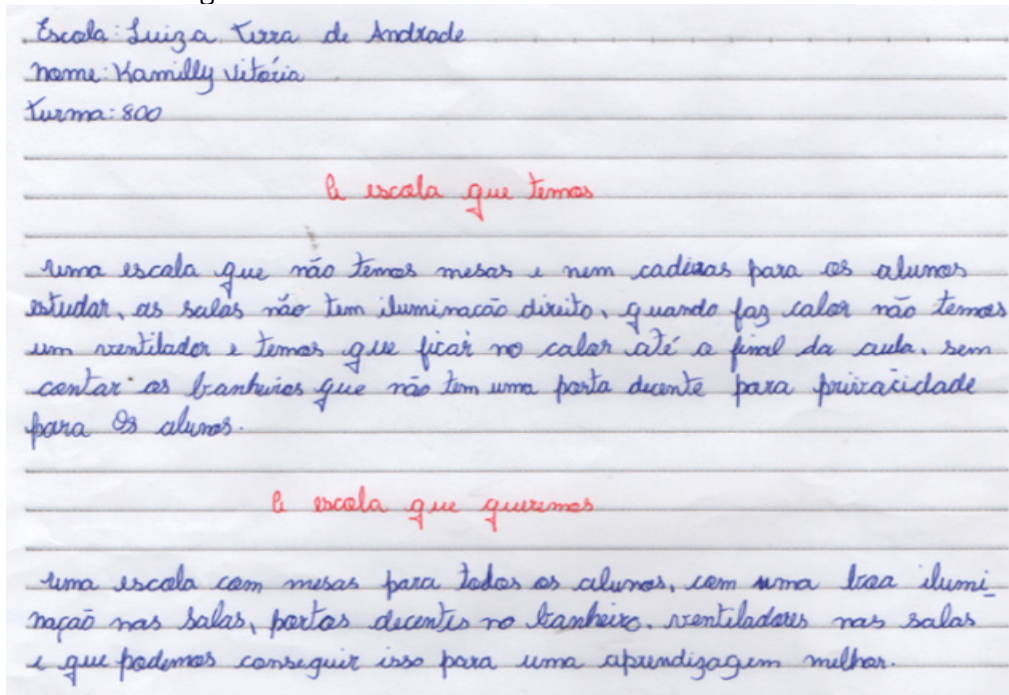 Escola: Luiza Terra de Andrade
nome: Kamilly Vitória
turma: 800
A escola que temos
uma escola que não temos mesas e nem cadeiras para os alunos
estudar, as salas não tem iluminacão direito, quando faz calor não temos
um ventilador e temos que ficar no calor até o final da aula. sem
contar os banheiros que não tem uma porta decente para privacidade
para Os alunos.
A escola que queremos
uma escola com mesas para todos os alunos, com uma boa ilumi_
nação nas salas, portas decentes no banheiro. ventiladores nas salas
e que podemos conseguir isso para uma aprendizagem melhor.